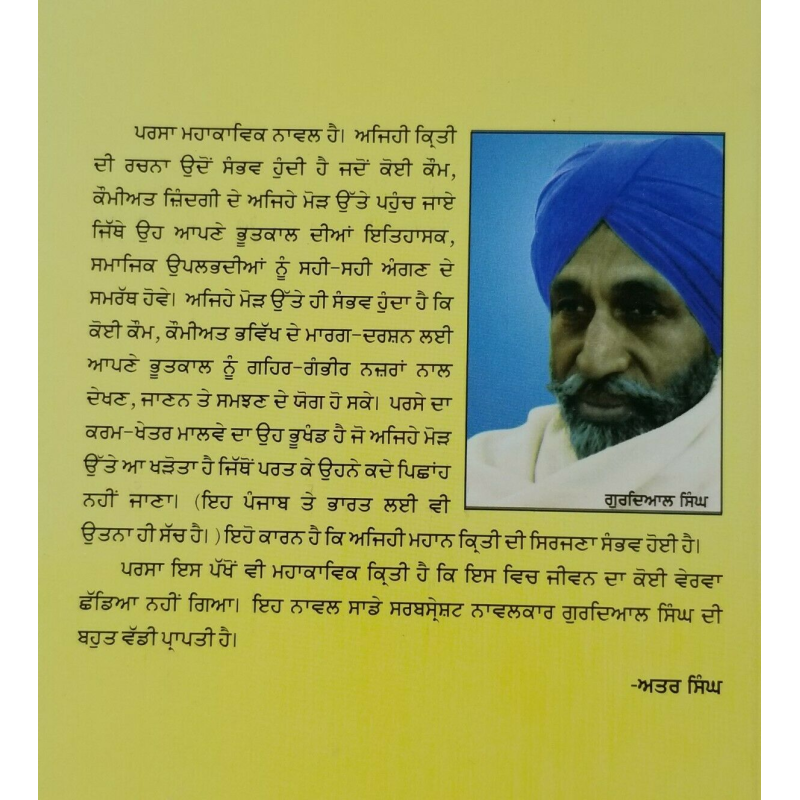 ਪਰਸਾ ਮਹਾਕਾਵਿਕ ਨਾਵਲ ਹੈ। ਅਜਿਹੀ ਕ੍ਰਿਤੀ
ਦੀ ਰਚਨਾ ਉਦੋਂ ਸੰਭਵ ਹੁੰਦੀ ਹੈ ਜਦੋਂ ਕੋਈ ਕੌਮ,
ਕੌਮੀਅਤ ਜ਼ਿੰਦਗੀ ਦੇ ਅਜਿਹੇ ਮੋੜ ਉੱਤੇ ਪਹੁੰਚ ਜਾਏ
ਜਿੱਥੇ ਉਹ ਆਪਣੇ ਭੂਤਕਾਲ ਦੀਆਂ ਇਤਿਹਾਸਕ,
ਸਮਾਜਿਕ ਉਪਲਭਦੀਆਂ ਨੂੰ ਸਹੀ-ਸਹੀ ਅੰਗਣ ਦੇ
ਸਮਰੱਥ ਹੋਵੇ। ਅਜਿਹੇ ਮੋੜ ਉੱਤੇ ਹੀ ਸੰਭਵ ਹੁੰਦਾ ਹੈ ਕਿ
ਕੋਈ ਕੌਮ, ਕੌਮੀਅਤ ਭਵਿੱਖ ਦੇ ਮਾਰਗ-ਦਰਸ਼ਨ ਲਈ
ਆਪਣੇ ਭੂਤਕਾਲ ਨੂੰ ਗਹਿਰ-ਗੰਭੀਰ ਨਜ਼ਰਾਂ ਨਾਲ
ਦੇਖਣ, ਜਾਣਨ ਤੇ ਸਮਝਣ ਦੇ ਯੋਗ ਹੋ ਸਕੇ। ਪਰਸੇ ਦਾ
ਕਰਮ-ਖੇਤਰ ਮਾਲਵੇ ਦਾ ਉਹ ਭੂਖੰਡ ਹੈ ਜੋ ਅਜਿਹੇ ਮੋੜ
ਉੱਤੇ ਆ ਖੜੋਤਾ ਹੈ ਜਿੱਥੋਂ ਪਰਤ ਕੇ ਉਹਨੇ ਕਦੇ ਪਿਛਾਂਹ
ਨਹੀਂ ਜਾਣਾ। (ਇਹ ਪੰਜਾਬ ਤੇ ਭਾਰਤ ਲਈ ਵੀ
ਗੁਰਦਿਆਲ ਸਿੰਘ
ਉਤਨਾ ਹੀ ਸੱਚ ਹੈ। )ਇਹੋ ਕਾਰਨ ਹੈ ਕਿ ਅਜਿਹੀ ਮਹਾਨ ਕ੍ਰਿਤੀ ਦੀ ਸਿਰਜਣਾ ਸੰਭਵ ਹੋਈ ਹੈ।
ਪਰਸਾ ਇਸ ਪੱਖੋਂ ਵੀ ਮਹਾਕਾਵਿਕ ਕ੍ਰਿਤੀ ਹੈ ਕਿ ਇਸ ਵਿਚ ਜੀਵਨ ਦਾ ਕੋਈ ਵੇਰਵਾ
ਛੱਡਿਆ ਨਹੀਂ ਗਿਆ। ਇਹ ਨਾਵਲ ਸਾਡੇ ਸਰਬਸ੍ਰੇਸ਼ਟ ਨਾਵਲਕਾਰ ਗੁਰਦਿਆਲ ਸਿੰਘ ਦੀ
ਬਹੁਤ ਵੱਡੀ ਪ੍ਰਾਪਤੀ ਹੈ।
-ਅਤਰ ਸਿੰਘ